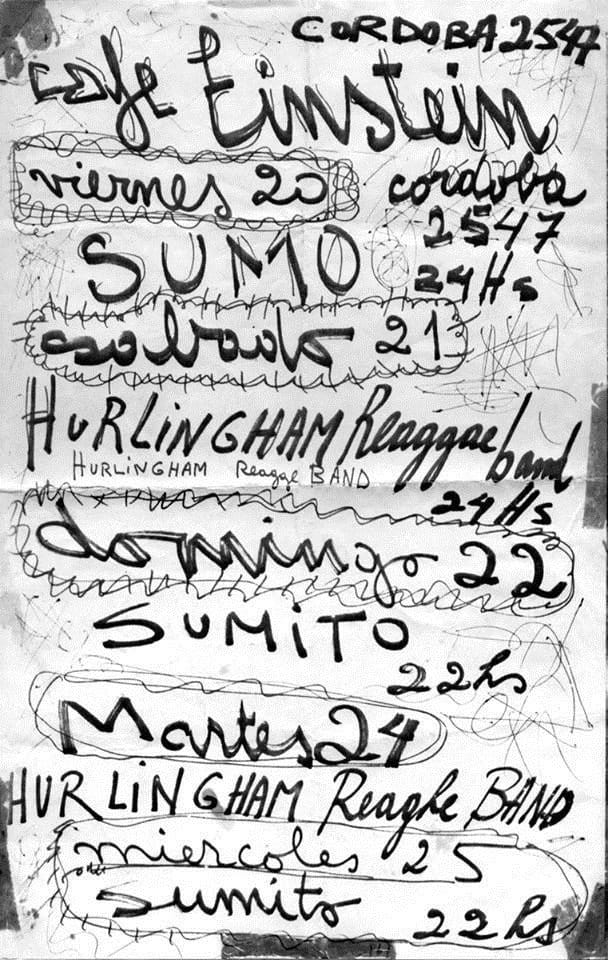 CORDOBA 2547
cafe Einstein
viernes 20
cordoba
2547
SUMO
24 Hs
sabado 21
HURLINGHAM Reaggae band
HURLINGHAM Reagge BAND
24 Hs
domingo 22
SUMITO
22 hs
Martes 24
HURLINGHAM Reaghe BAND
miercoles 25
sumito
22 hs